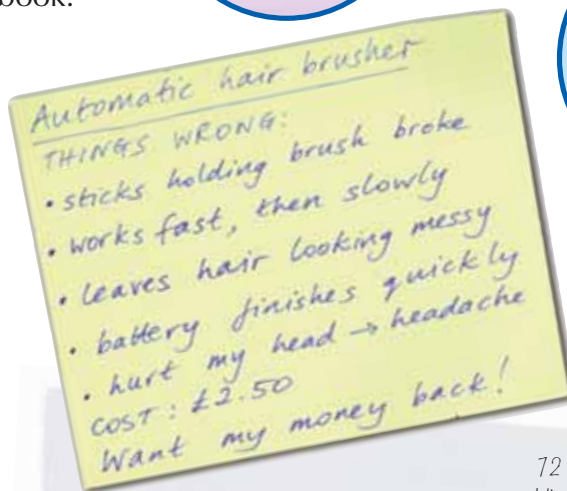 book.
Automatic hair brusher
THINGS WRONG:
• sticks holding brush broke
• works fast, then slowly
• leaves hair looking messy
• battery finishes quickly
• hurt my head → headache
COST: £2.50
Want my money back!
12